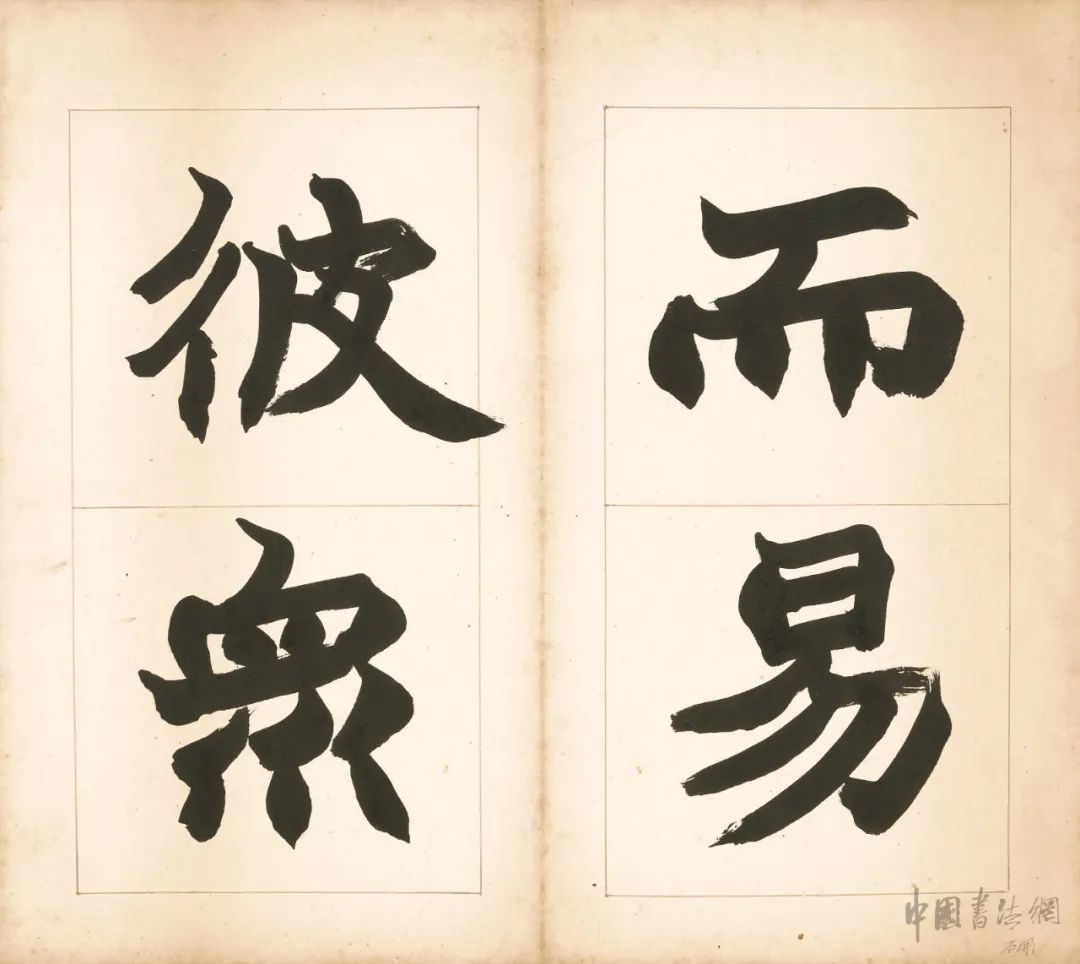 而易
彼衆
中國書法網
石開